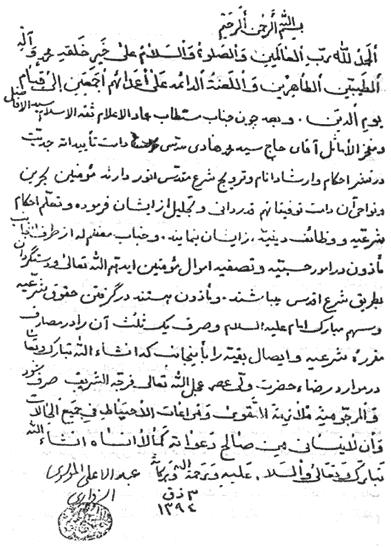 بسم الله الرحمن الرحیم
الحمد لله رب العالمین والصلوة والسلام علی خیر خلقه محمد وآله
الطیبین الطاهرین واللعنة الدائمه علی اعدائهم اجمعین إلی قیام
یوم الدین . وبعد چون جناب مستطاب عماد الاعلام ثقة الاسلام سید الافاضل
ومفخر الأماثل آقای حاج سید محمد هادی مدرسی دامت تأییداته جدیت
در نشر احکام وارشاد انام وترویج شرع مقدس انور دارند مؤمنین بحرین
ونواحی آن دامت توفیقاتهم قدردانی وتجلیل از ایشان فرموده وتعلم احکام
شرعیه ووظائف دینیه از ایشان بنمایند . وجناب معظم له از طرف اینجانب
مأذون در امور حسبیه وتصفیه اموال مؤمنین ایدهم الله تعالی ودستگردان
بطریق شرع اقدس میباشند . ومأذون هستند در گرفتن حقوق شرعیه
وسهم مبارک امام علیه السلام وصرف یک ثلث آن را در مصارف
مقرره شرعیه وایصال بقیه را باینجانب که انشاء الله تبارک وتعالی
در موارد رضاء حضرت ولی عصر عجل الله تعالی فرجه الشریف صرف شود
والمرجو منه ملازمة التقوی ومراعات الاحتیاط فی جمیع الحالات
وأن لا ینسانی من صالح دعواته کما لا أنساه انشاء الله
تبارک وتعالی والسلام علیه ورحمة الله وبرکاته
عبد الاعلی الموسوی
السبزواری
٣ ذق
١٣٩٤